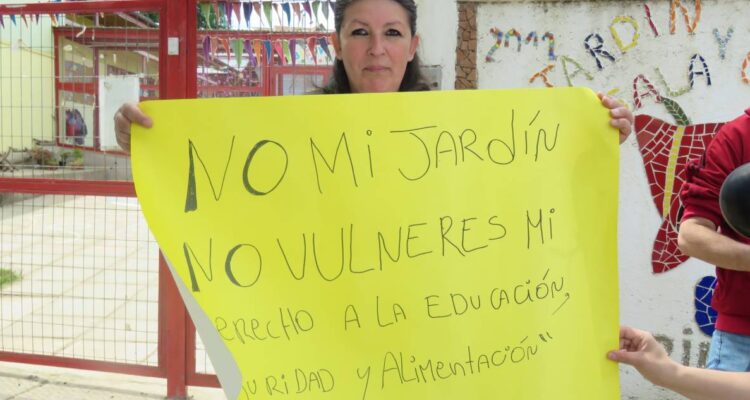 NO MI JARDÍN
NO VULNERES MI
ERECHO A LA EDUCACIÓN,
URIDAD Y ALIMENTACIÓN"
JARDIN
JARDIN